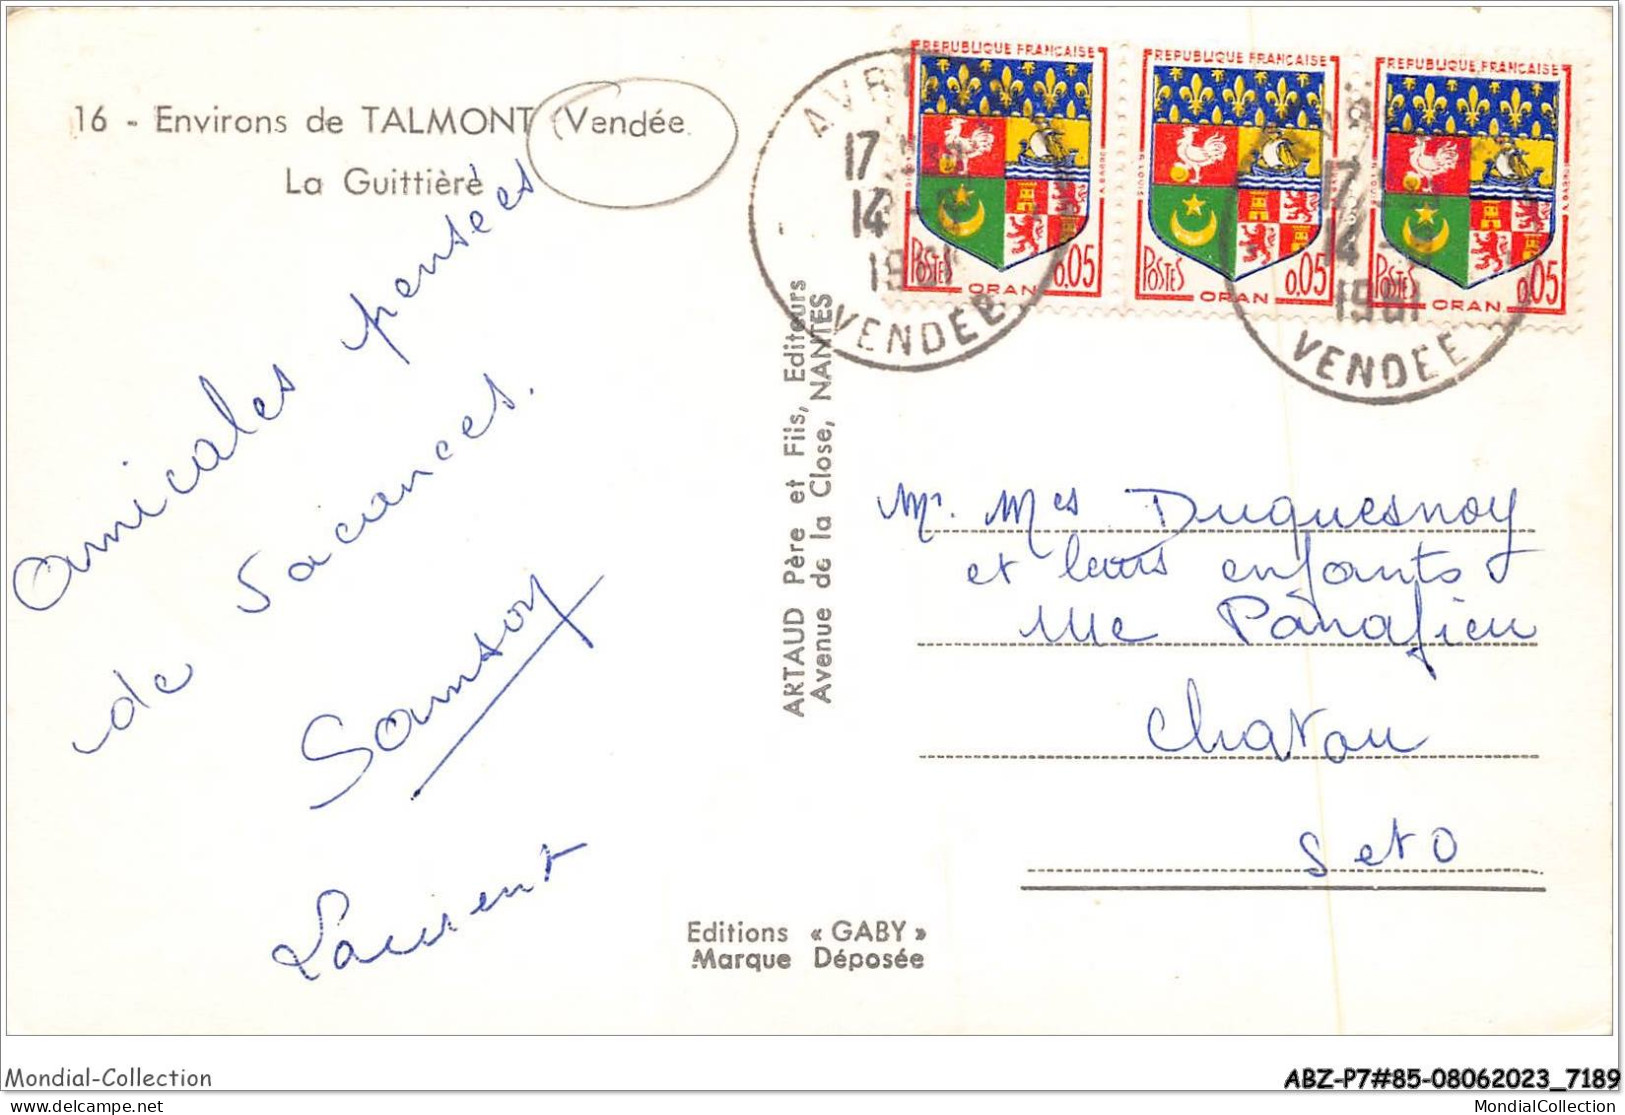 16 - Environs de TALMONT (Vendée)
La Guittière
Amicales pensées
de vacances.
Samson
Laurent
ARTAUD Père et Fils, Editeurs
Avenue de la Close, NANTES
Editions « GABY »
Marque Déposée
REPUBLIQUE FRANÇAISE
POSTES ORAN 0,05
REPUBLIQUE FRANÇAISE
POSTES ORAN 0,05
REPUBLIQUE FRANÇAISE
POSTES ORAN 0,05
17
14
1961
VENDÉE
17
14
1961
VENDEE
Mr. Mes Duquesnoy
et leurs enfants
rue Panafieu
Chatou
S et O
Mondial-Collection
ABZ-P7#85-08062023_7189
mondial-collection.com
MondialCollection